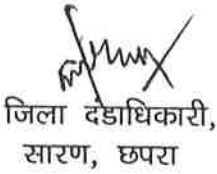 जिला दंडाधिकारी,
सारण, छपरा